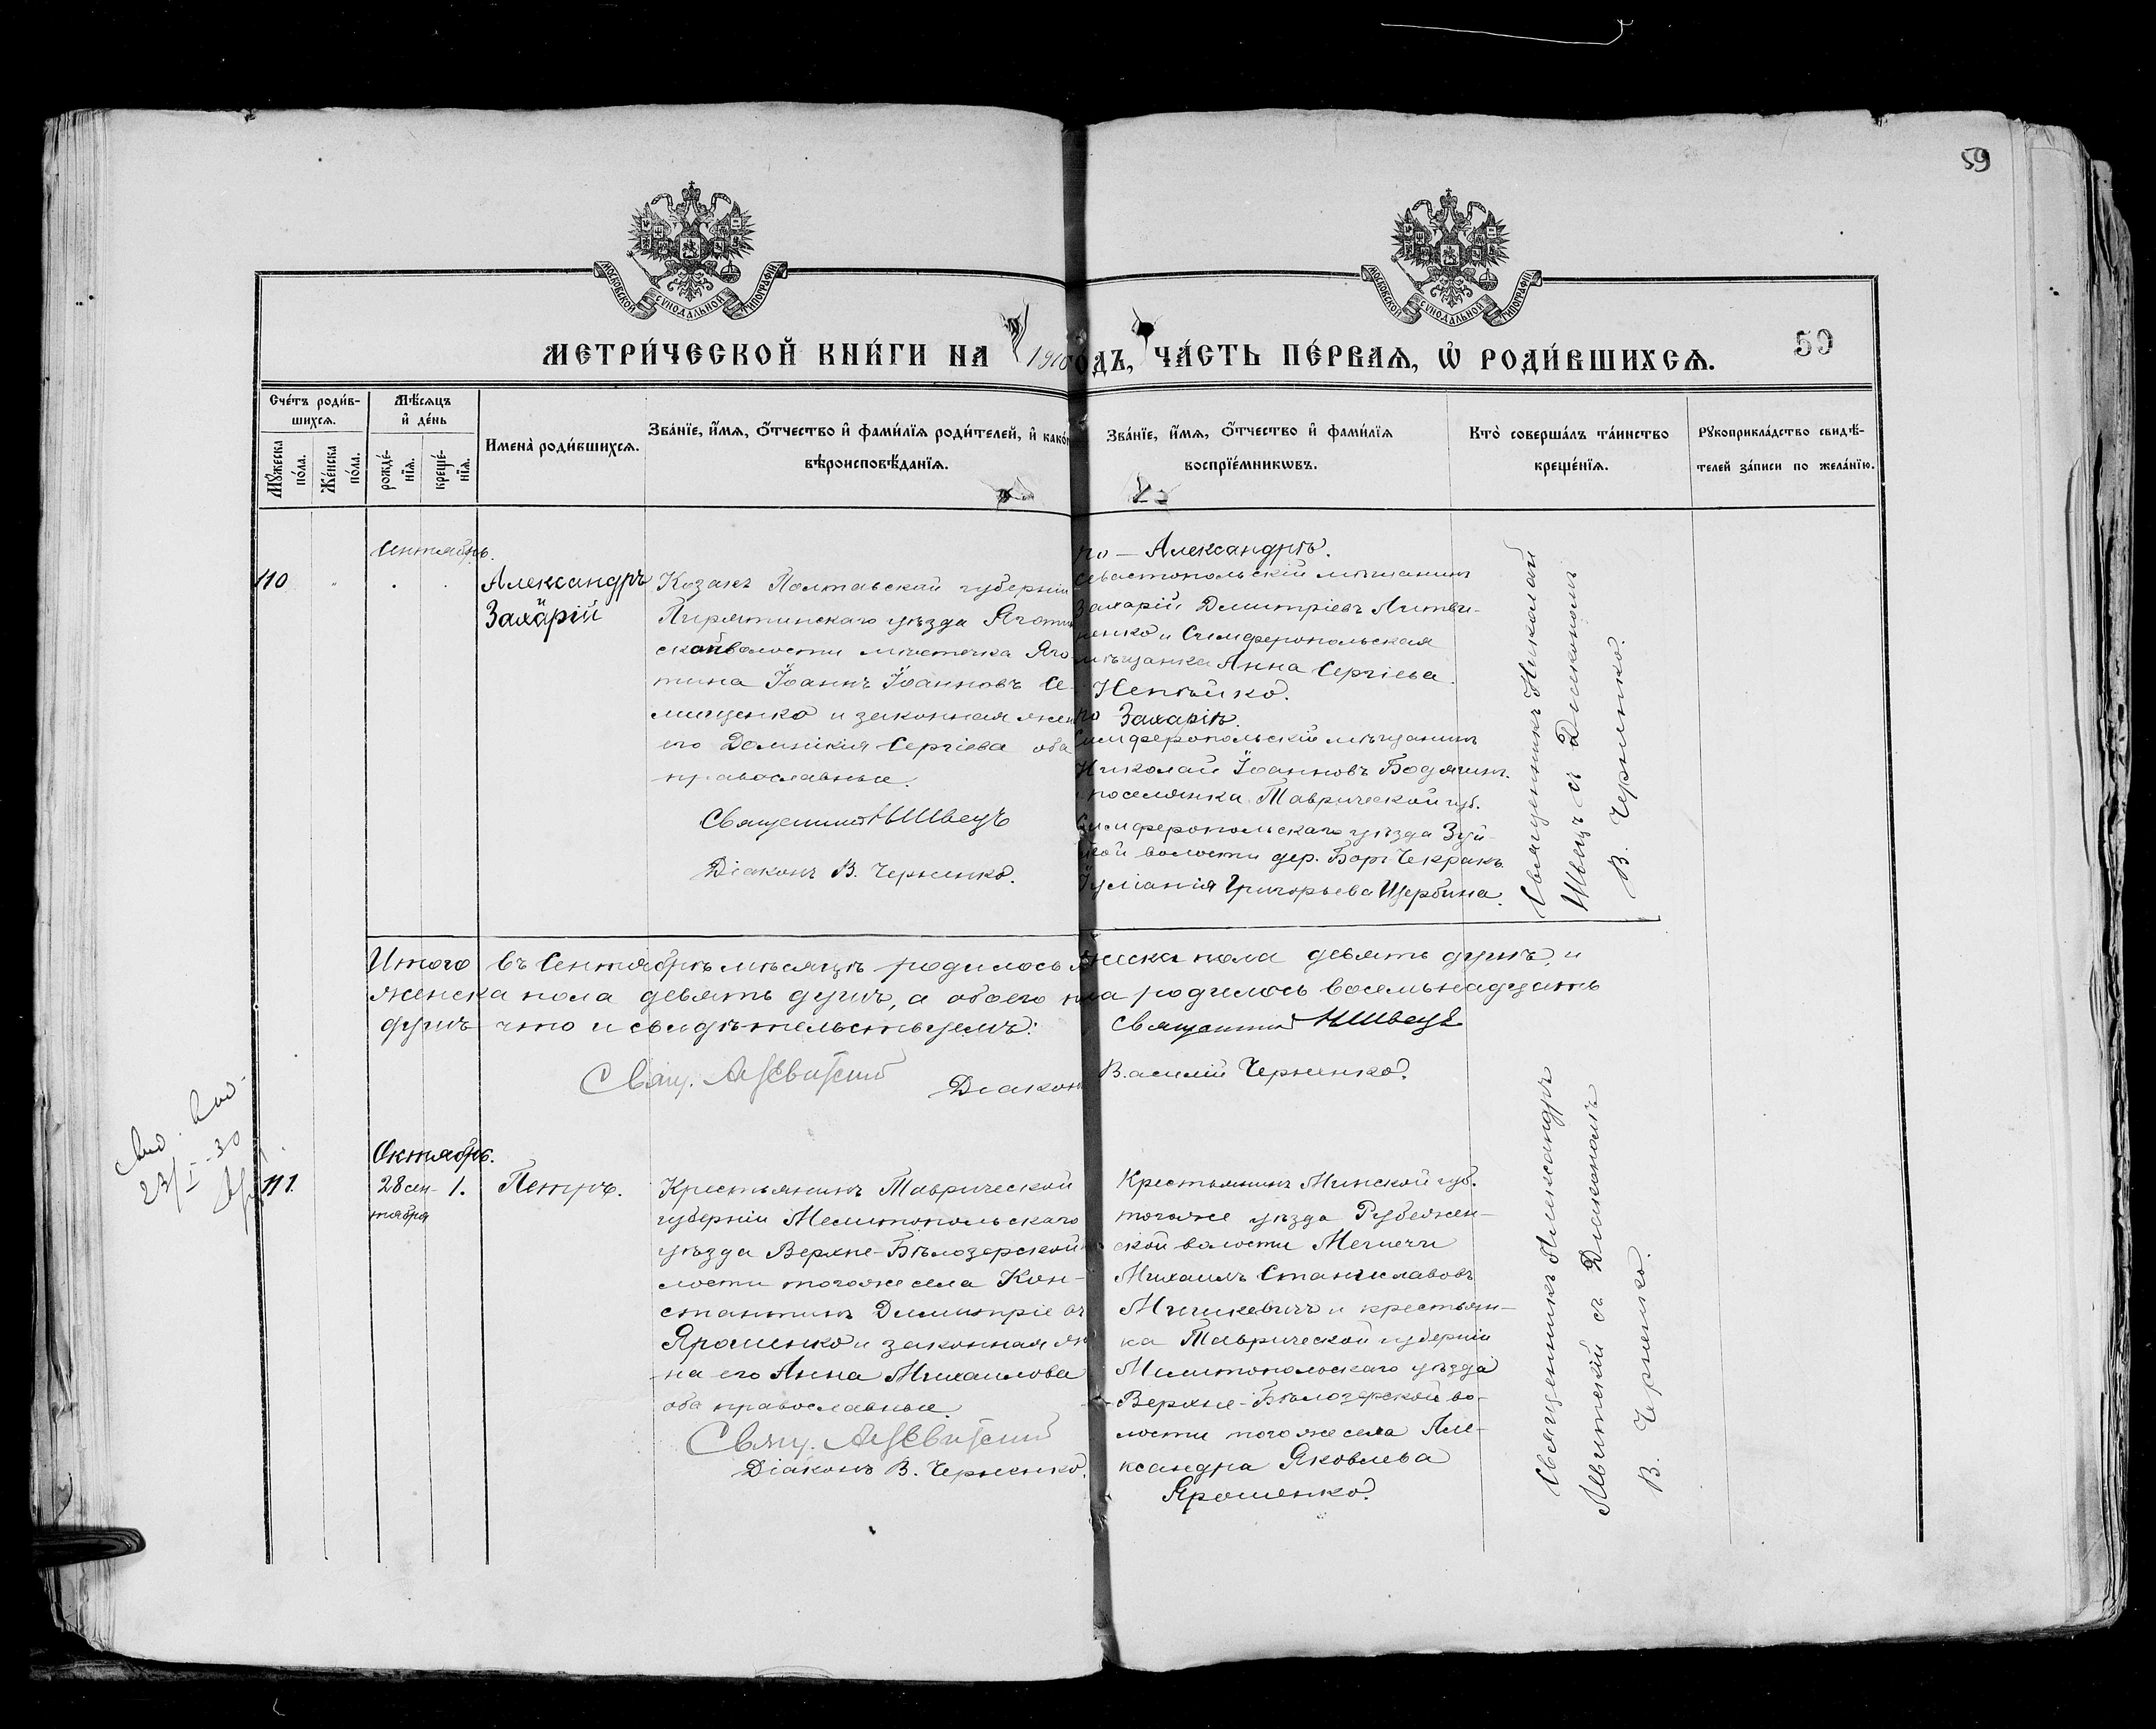 59
МОСКОВСКОЙ СѴНОДАЛЬНОЙ ТИПОГРАФІИ
МОСКОВСКОЙ СѴНОДАЛЬНОЙ ТИПОГРАФІИ
МЕТРИ́ЧЕСКОЙ КНИ́ГИ НА 1910 ГОДЪ, ЧА́СТЬ ПЕ́РВАѦ, Ѡ҆ РОДИ́ВШИХСѦ.
59
Сче́тъ роди́в-
шихсѧ.
Мꙋ́жеска по́ла.
Же́нска по́ла.
Мѣ́сѧцъ
и҆ де́нь
рожде́-
нїѧ.
креще́-
нїѧ.
Имена̀ роди́вшихсѧ.
Зва́нїе, и҆́мѧ, ѻ҆́тчество и҆ фами́лїѧ роди́телей, и҆ како́г
вѣроисповѣ́данїѧ.
Зва́нїе, и҆́мѧ, ѻ҆́тчество и҆ фами́лїѧ
воспрїе́мникѡвъ.
Кто̀ соверша́лъ та́инство
креще́нїѧ.
Рꙋкоприкла́дство свидѣ́-
телей за́писи по жела́нїю.
Сентябрь.
110
Александръ
Захарій
Козакъ Полтавской губерніи
Пирятинскаго уѣзда Яготин
ской волости мѣстечка Яго-
тина Іоаннъ Іоанновъ Се-
мищенко и законная жен
его Домникія Сергіева оба
православные.
Священникъ Н Швецъ
Діаконъ В. Черненко.
по — Александрѣ.
Севастопольскій мѣщанинъ
Захарій Димитріевъ Литви-
ненко и Симферопольская
мѣщанка Анна Сергіева
Непѣйко.
по Захаріи.
Симферопольскій мѣщанинъ
Николай Іоанновъ Бодягинъ.
поселянка Таврической губ.
Симферопольскаго уѣзда Зуй-
ской волости дер. Борг-Чекракъ
Іуліанія Григорьева Щербина.
Священникъ Николай
Швецъ съ Діакономъ
В. Черненко.
Итого въ Сентябрѣ мѣсяцѣ родилось мужеска пола девять душъ, и
женска пола девять душъ, а обоего пола родилось восемьнадцать
душъ что и свидѣтельствуемъ: Священникъ Н Швецъ
Свящ. А Левитскій
Діаконъ Василій Черненко.
Октябрь.
23/I-30
111.
28 сен-
тября
1.
Петръ.
Крестьянинъ Таврической
губерніи Мелитопольскаго
уѣзда Верхне-Бѣлозерской во
лости тогоже села Кон-
стантинъ Димитріевъ
Ярошенко и законная же
на его Анна Михаилова
оба православные.
Свящ. А Левитскій
Діаконъ В. Черненко.
Крестьянинъ Минской губ.
тогоже уѣзда Рубежен-
ской волости
Михаилъ Станиславовъ
Мицкевичъ и крестьян-
ка Таврической губерніи
Мелитопольскаго уѣзда
Верхне-Бѣлозерской во-
лости тогоже села Але-
ксандра Яковлева
Ярошенко.
Священникъ Александръ
Левитскій съ Діакономъ
В. Черненко.